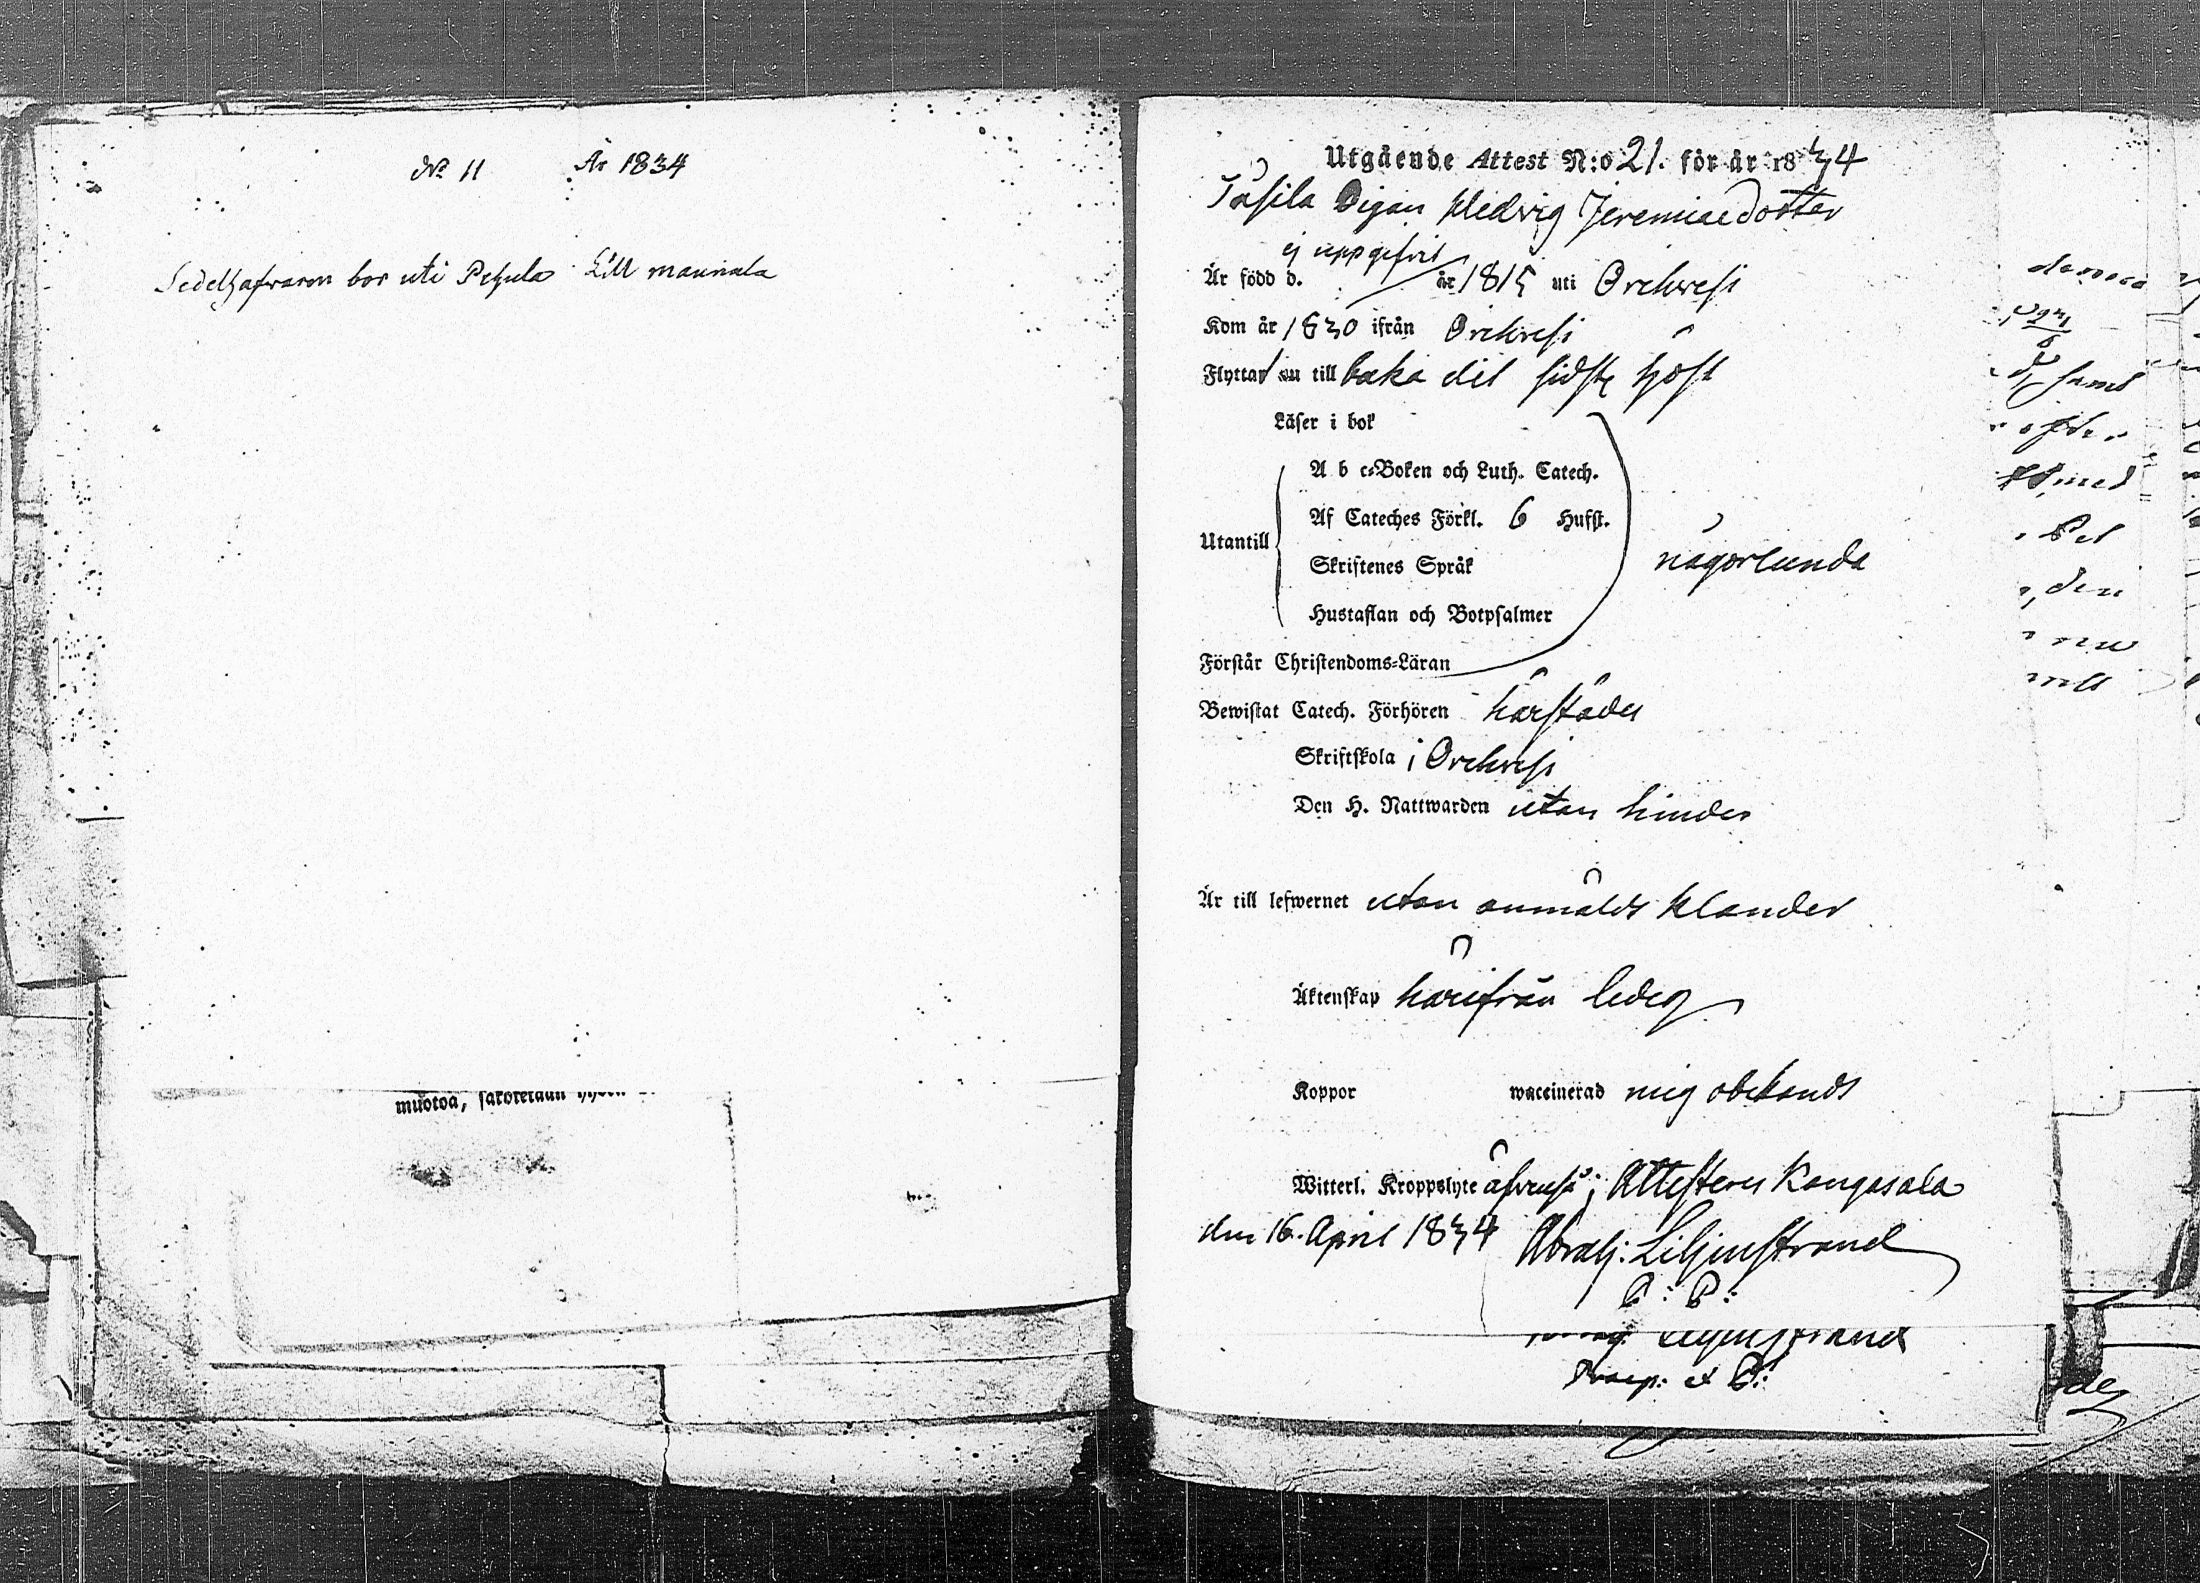 No 11 År 1834
Sedelhafvaren bor uti Pehula Lill maunula
muotoa,
Utgående Attest N:o 21. för år 1834
Pigan Hedvig Jeremiaedotter
ej uppgifvit
Är född d. år 1815 uti Orehvesi
Kom år 1830 ifrån Orehvesi
Flyttar nu till baka dit sidste höst
Läser i bok
A b c-Boken och Luth. Catech.
Af Cateches Förkl. 6 Hufst.
Utantill
Skriftenes Språk
någorlunda
Hustaflan och Botpsalmer
Förstår Christendoms-Läran
Bewistat Catech. Förhören härstädes
Skriftskola i Orehvesi
Den H. Nattwarden utan hinder
Är till lefwernet utan anmäldt klander
Äktenskap härifrån ledig
Koppor waccinerad mig obekandt
Witterl. Kroppslyte äfvenså; Attesteres Kangasala
den 16. April 1834 Abrah: Liljenstrand
P: P:
Liljenstrand
Praep: et P:
samt
efter
med
den